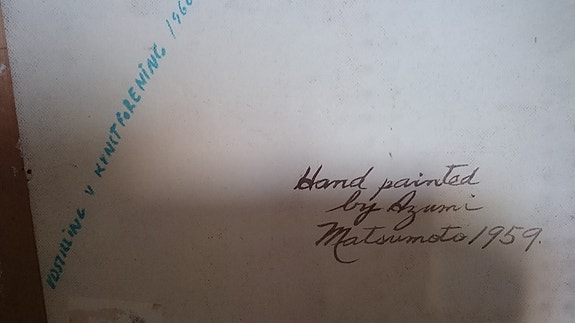 UDSTILLING V KUNSTFORENING 1960
Hand painted
by Azumi
Matsumoto 1959.